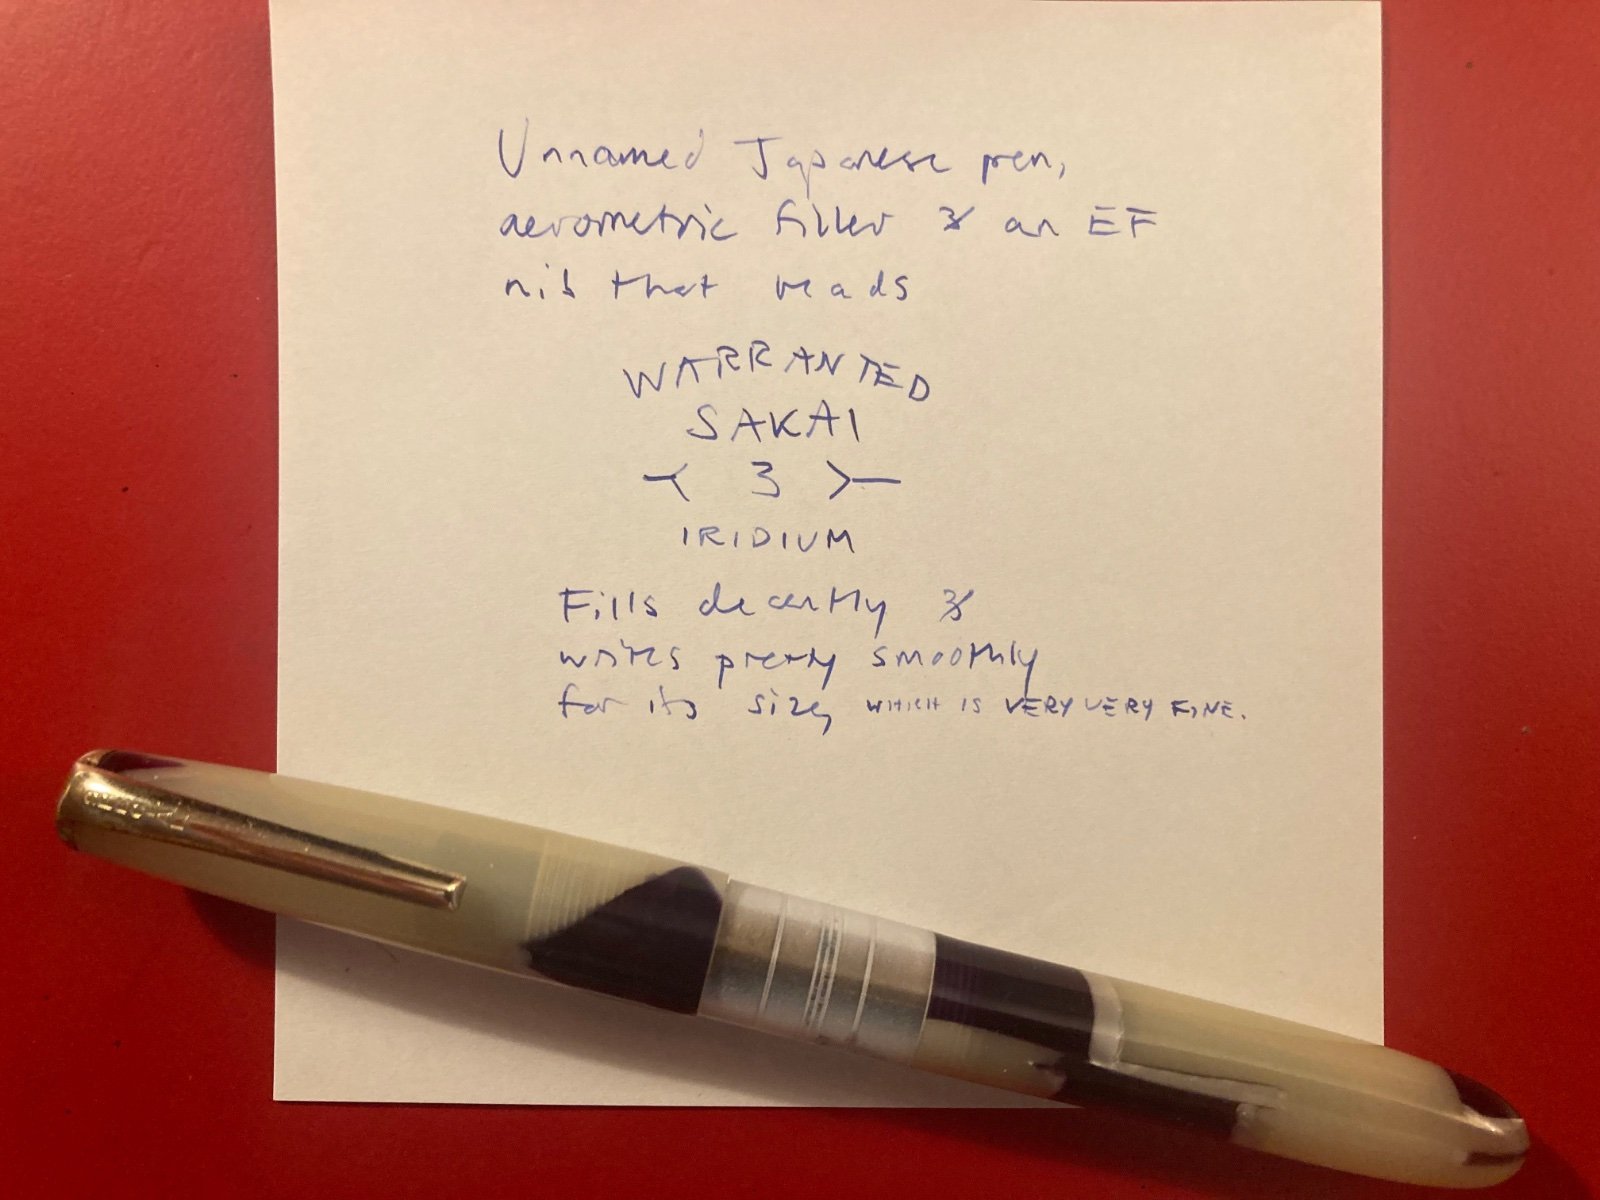 Unnamed Japanese pen,
aerometric filler & an EF
nib that reads
WARRANTED
SAKAI
3
IRIDIUM
Fills decently &
writes pretty smoothly
for its size, WHICH IS VERY VERY FINE.